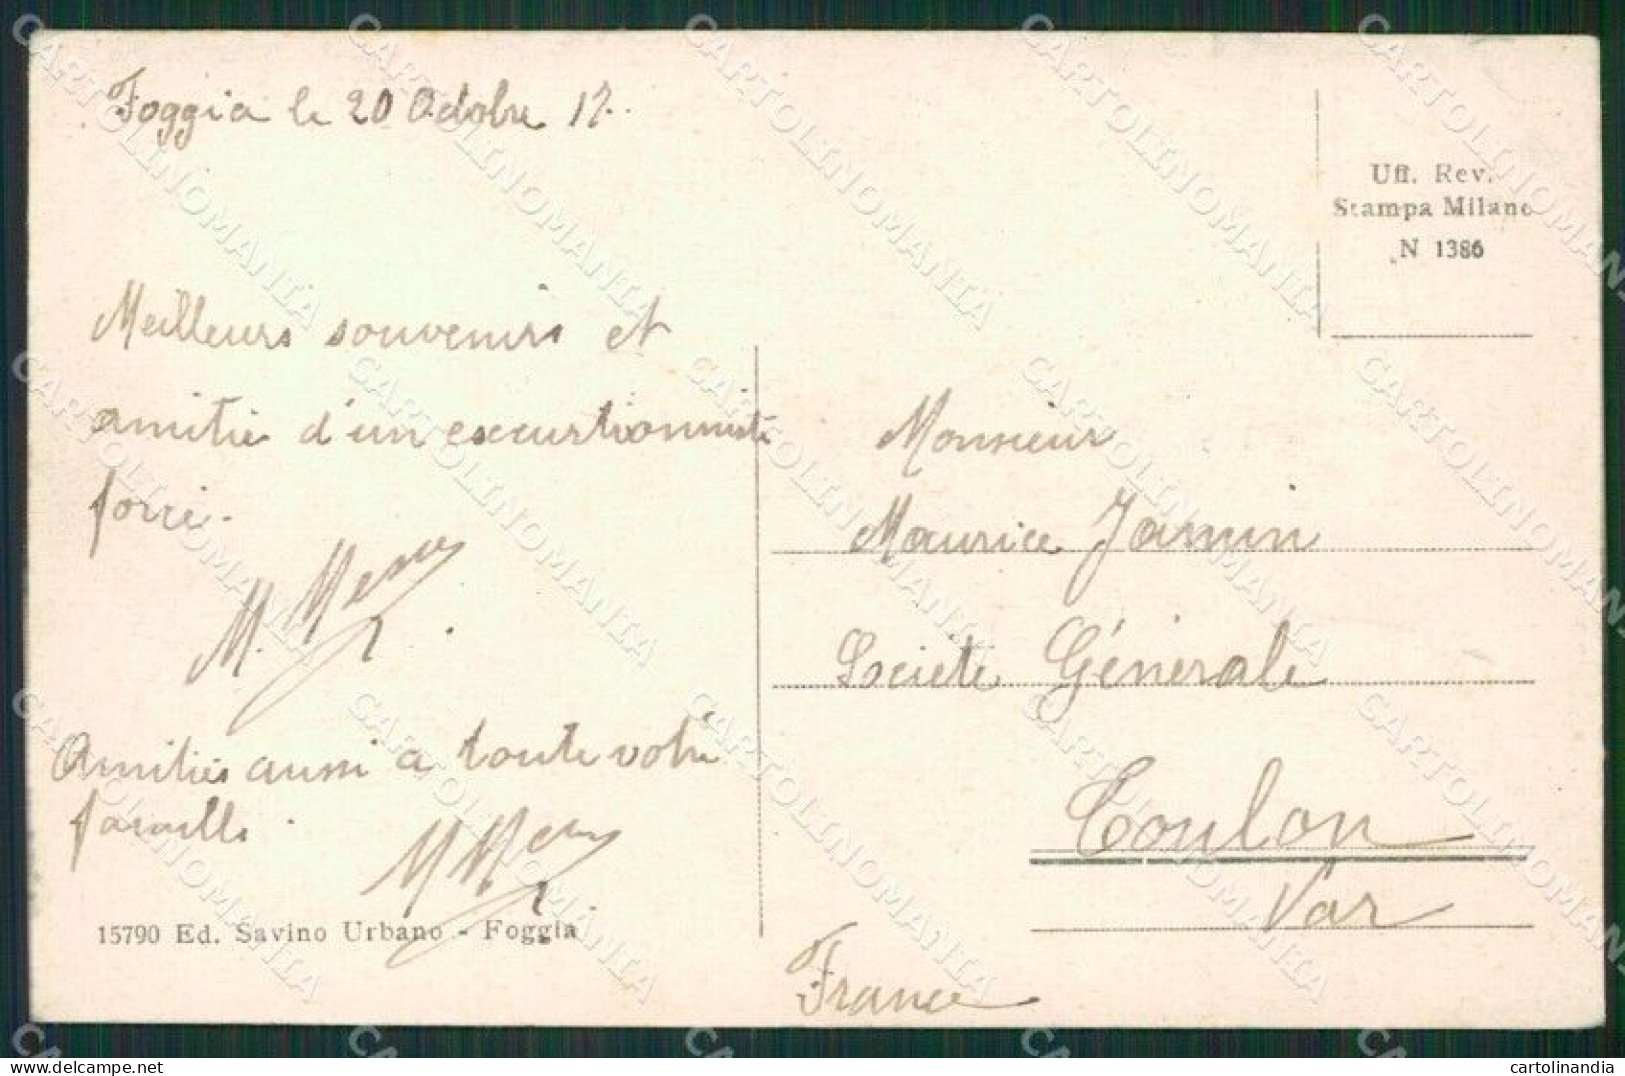 Foggia le 20 Octobre 17.
Uff. Rev.
Stampa Milano
N 1386
Meilleurs souvenirs et
amitié d'un excurtionniste
forcé.
M.
Amitiés aussi a toute votre
famille.
15790 Ed. Savino Urbano - Foggia
Monsieur
Maurice Jamin
Societé Génerale
Toulon
Var
France
CARTOLINOMANIA
cartolinandia